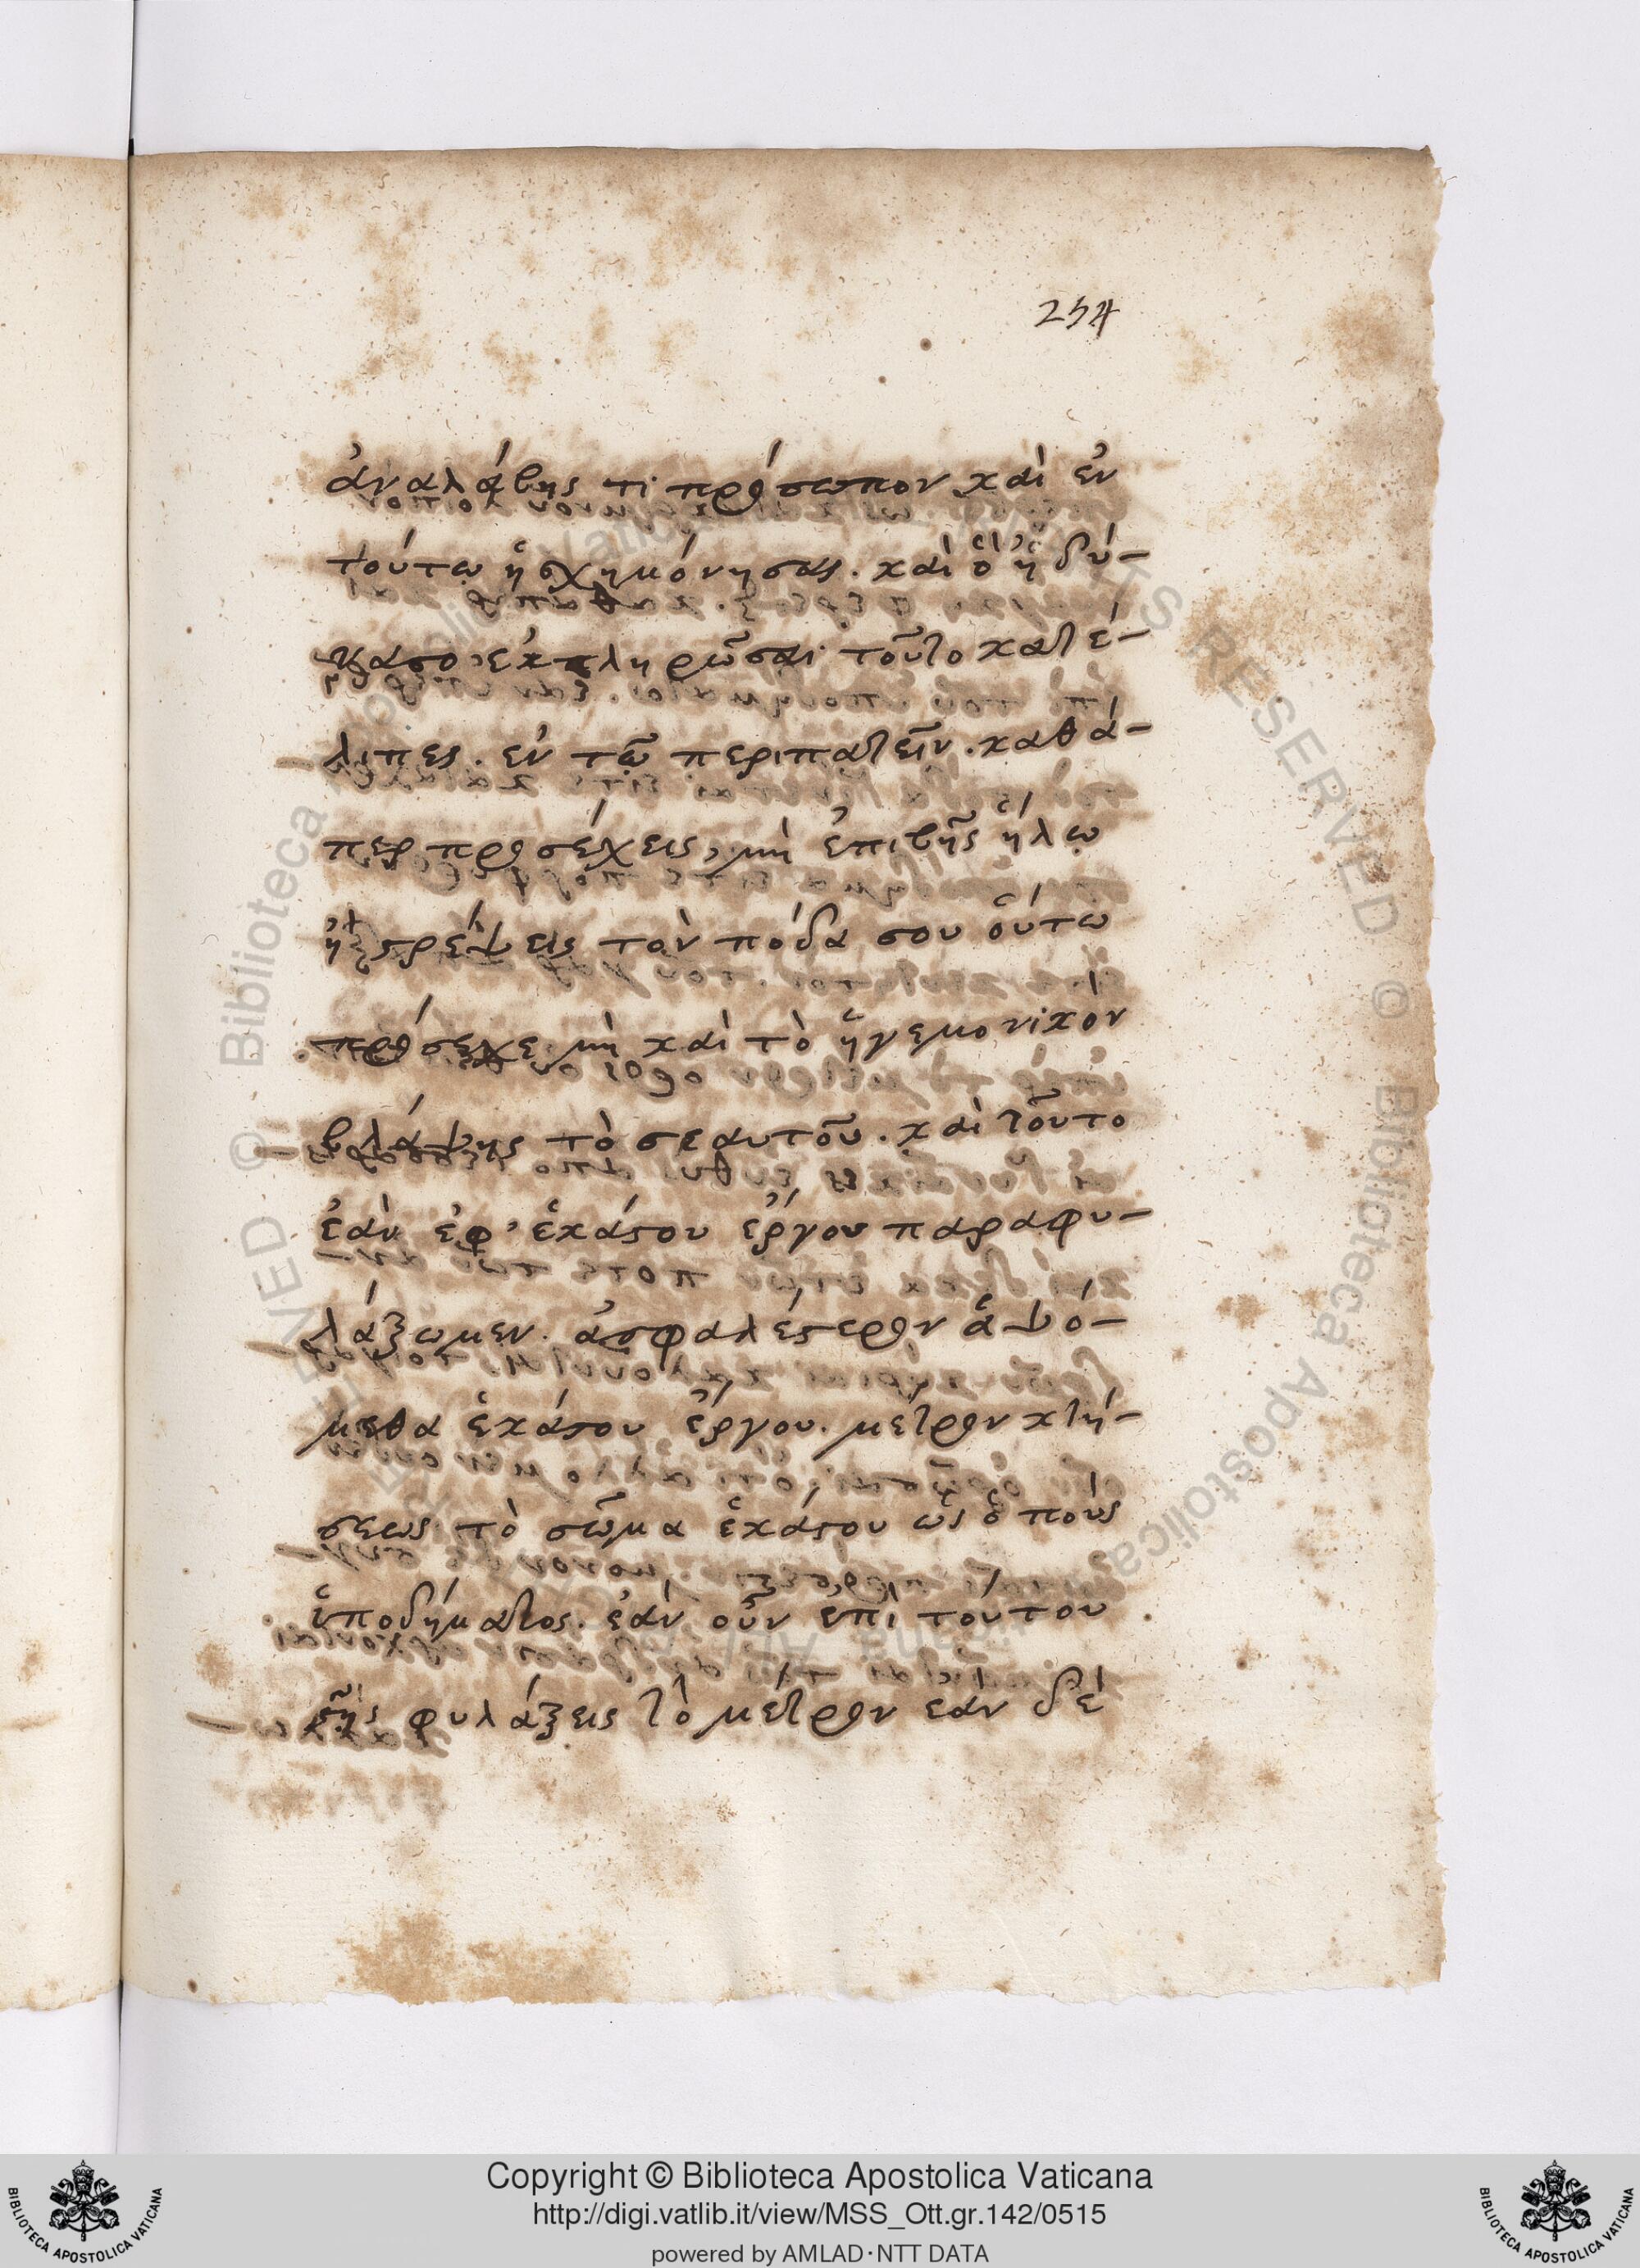 254
ἀναλάβης τι πρόσωπον καὶ ἐν
τούτω ἠσχημόνησας. καὶ ὃ ἠδύ-
νασο ἐκπληρῶσαι τοῦτο κατέ-
λιπες. ἐν τῶ περιπατεῖν. καθά-
περ προσέχεις, μὴ ἐπιβῆς ἥλω
ἢ στρέψεις τὸν πόδα σου οὕτω
πρόσεχε μὴ καὶ τὸ ἡγεμονικὸν
βλάψης τὸ σεαυτοῦ. καὶ τοῦτο
ἐὰν ἐφ' ἑκάστου ἔργου παραφυ-
λάξωμεν. ἀσφαλέστερον ἁψό-
μεθα ἑκάστου ἔργου. μέτρον κτή-
σεως τὸ σῶμα ἑκάστου ὡς ὁ ποὺς
ὑποδήματος. ἐὰν οὖν ἐπὶ τούτου
στῆς φυλάξεις τὸ μέτρον ἐὰν δὲ
Copyright © Biblioteca Apostolica Vaticana
http://digi.vatlib.it/view/MSS_Ott.gr.142/0515
powered by AMLAD·NTT DATA
BIBLIOTECA APOSTOLICA VATICANA
BIBLIOTECA APOSTOLICA VATICANA